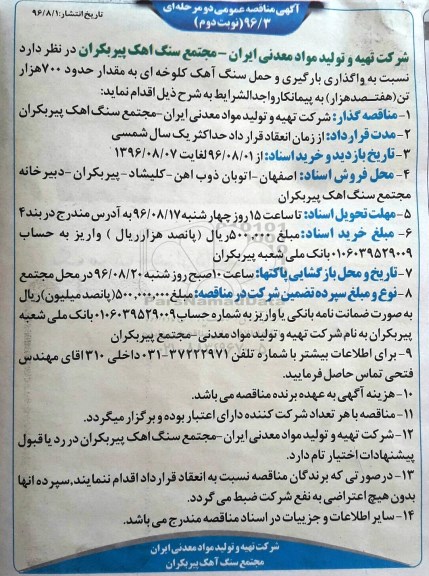 آگهی مناقصه عمومی دو مرحله ای
۹۶/۳ (نوبت دوم)
تاریخ انتشار: ۹۶/۸/۱
شرکت تهیه و تولید مواد معدنی ایران – مجتمع سنگ اهک پیربکران در نظر دارد
نسبت به واگذاری بارگیری و حمل سنگ آهک کلوخه ای به مقدار حدود ۷۰۰هزار
تن(هفتصدهزار) به پیمانکارواجدالشرایط به شرح ذیل اقدام نماید:
۱- مناقصه گذار: شرکت تهیه و تولید مواد معدنی ایران-مجتمع سنگ اهک پیربکران
۲-مدت قرارداد: از زمان انعقاد قرارداد حداکثر یک سال شمسی
۳- تاریخ بازدید و خرید اسناد: از ۹۶/۰۸/۰۱ لغایت ۱۳۹۶/۰۸/۰۷
۴- محل فروش اسناد: اصفهان-اتوبان ذوب اهن-کلیشاد- پیربکران -دبیرخانه
مجتمع سنگ اهک پیربکران
۵- مهلت تحویل اسناد: تا ساعت ۱۵ روز چهارشنبه ۹۶/۰۸/۱۷ به آدرس مندرج در بند۴
۶- مبلغ خرید اسناد: مبلغ ۵۰۰,۰۰۰ ریال (پانصد هزارریال ) واریز به حساب
۰۱۰۶۰۳۹۵۲۹۰۰۹بانک ملی شعبه پیربکران
۷- تاریخ و محل بازگشایی پاکتها: ساعت ۱۰صبح روز شنبه ۹۶/۰۸/۲۰ در محل مجتمع
۸- نوع و مبلغ سپرده تضمین شرکت در مناقصه: مبلغ ۵۰۰,۰۰۰,۰۰۰(پانصد میلیون)ریال
به صورت ضمانت نامه بانکی یا واریز به شماره حساب ۰۱۰۶۰۳۹۵۲۹۰۰۹بانک ملی شعبه
پیربکران به نام شرکت تهیه و تولید مواد معدنی -مجتمع پیربکران
۹- برای اطلاعات بیشتر با شماره تلفن ۳۷۲۲۲۹۷۱-۰۳۱ داخلی ۳۱۰ اقای مهندس
فتحی تماس حاصل فرمایید.
۱۰-هزینه آگهی به عهده برنده مناقصه می باشد.
۱۱-مناقصه با هر تعداد شرکت کننده دارای اعتبار بوده و برگزار میگردد.
۱۲- شرکت تهیه و تولید مواد معدنی ایران-مجتمع سنگ اهک پیربکران در رد یا قبول
پیشنهادات اختیار تام دارد.
۱۳-درصورتی که برندگان مناقصه نسبت به انعقاد قرارداد اقدام ننمایند,سپرده انها
بدون هیچ اعتراضی به نفع شرکت ضبط می گردد.
۱۴-سایر اطلاعات و جزییات در اسناد مناقصه مندرج می باشد.
شرکت تهیه و تولید مواد معدنی ایران
مجتمع سنگ آهک پیربکران